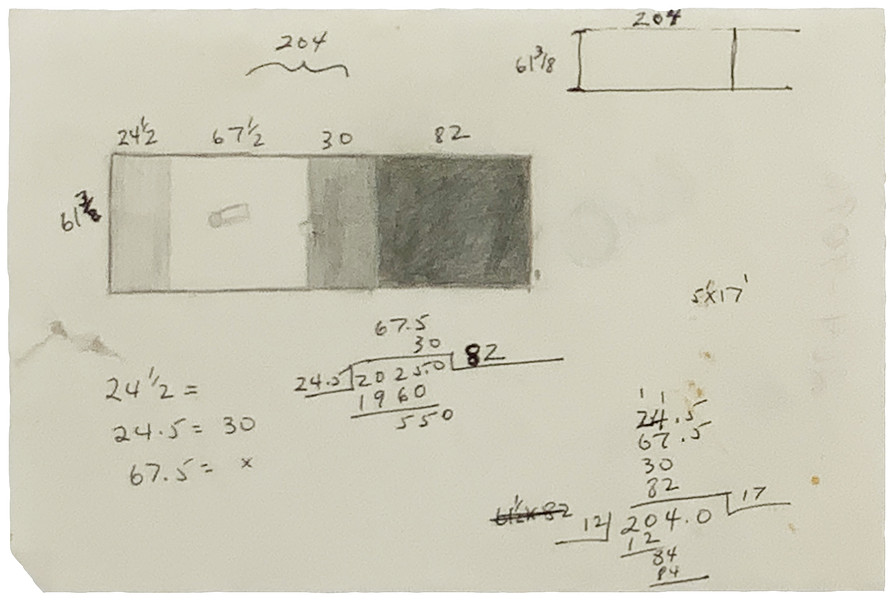 204
204
61 3/8
24 1/2 67 1/2 30 82
61 3/8
5'X17'
67.5
30
24.5 2025.0 82
1960
550
24 1/2 =
24.5 = 30
67.5 = x
1 1
24.5
67.5
30
82
61 1/2 X 82
12 204.0 17
12
84
84